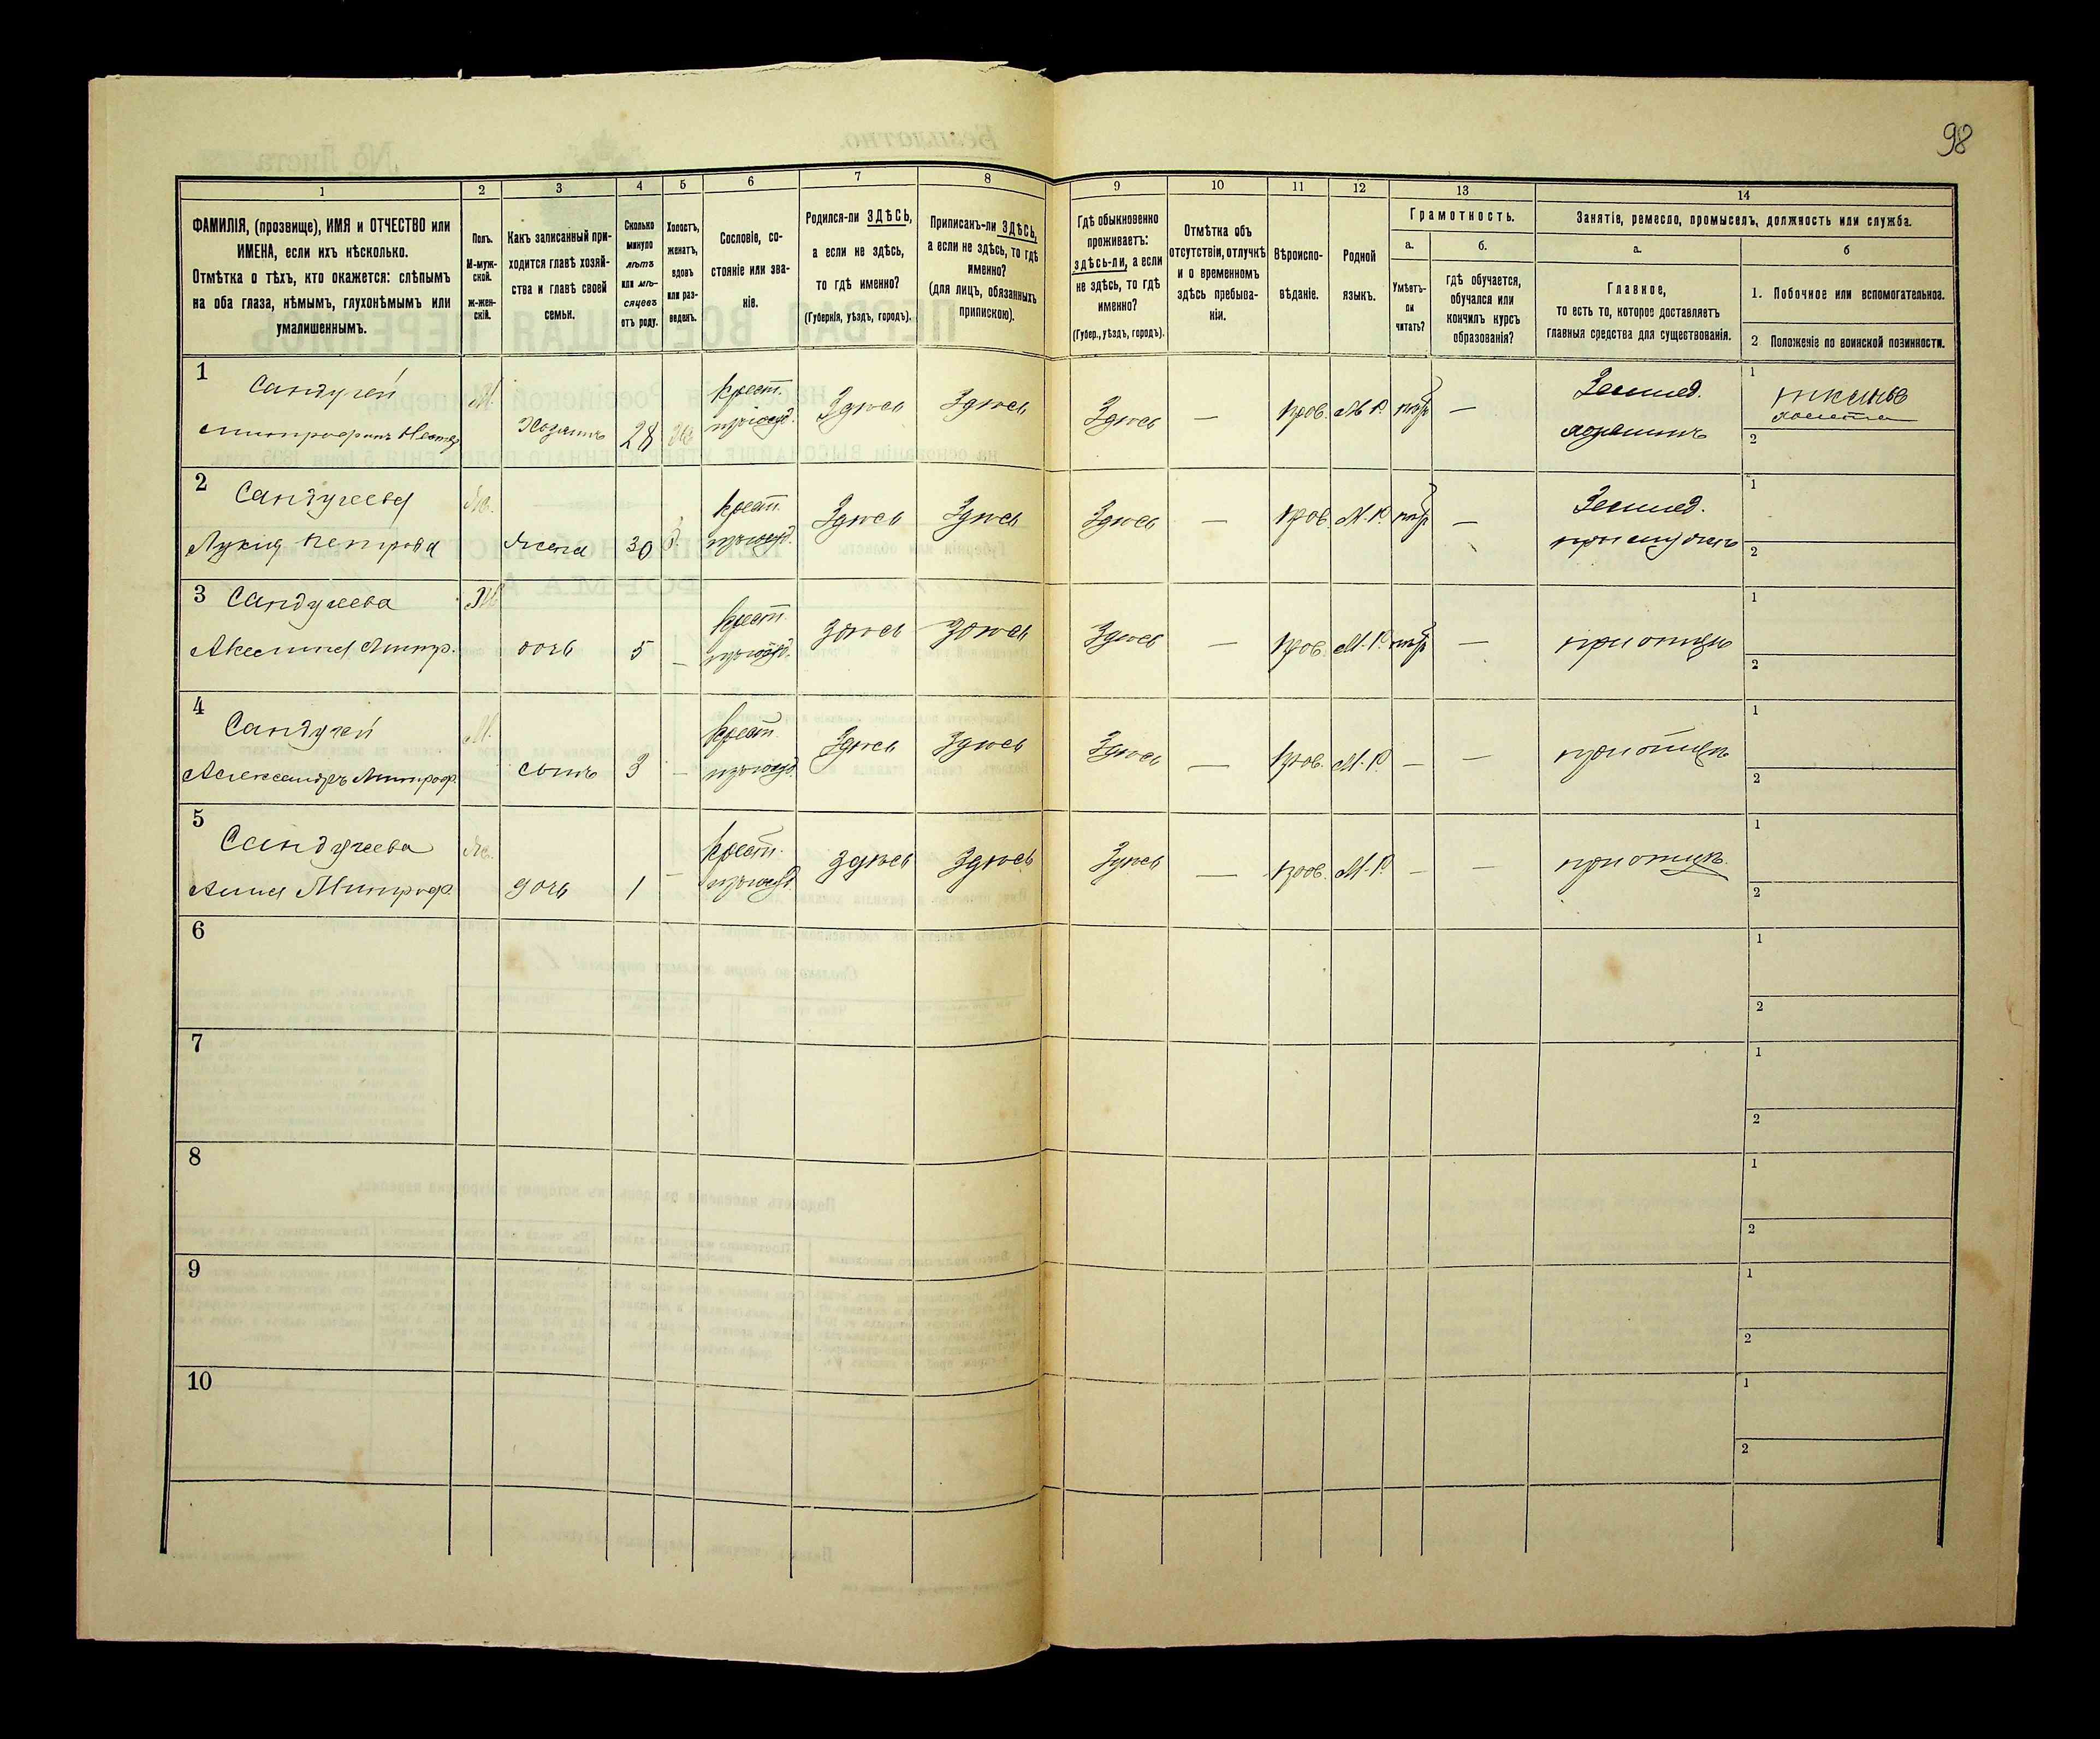 98
1
2
3
4
5
6
7
8
9
10
11
12
13
14
ФАМИЛІЯ, (прозвище), ИМЯ и ОТЧЕСТВО или
ИМЕНА, если ихъ нѣсколько.
Отмѣтка о тѣхъ, кто окажется: слѣпымъ
на оба глаза, нѣмымъ, глухонѣмымъ или
умалишеннымъ.
Полъ.
М-муж-
ской.
ж-жен-
скій.
Какъ записанный при-
ходится главѣ хозяй-
ства и главѣ своей
семьи.
Сколько
минуло
лѣтъ
или мѣ-
сяцевъ
отъ роду.
Холостъ,
женатъ,
вдовъ
или раз-
веденъ.
Сословіе, со-
стояніе или зва-
ніе.
Родился-ли ЗДѢСЬ,
а если не здѣсь,
то гдѣ именно?
(Губернія, уѣздъ, городъ).
Приписанъ-ли ЗДѢСЬ,
а если не здѣсь, то гдѣ
именно?
(для лицъ, обязанныхъ
припискою).
Гдѣ обыкновенно
проживаетъ:
здѣсь-ли, а если
не здѣсь, то гдѣ
именно?
(Губер., уѣздъ, городъ).
Отмѣтка объ
отсутствіи, отлучкѣ
и о временномъ
здѣсь пребыва-
ніи.
Вѣроиспо-
вѣданіе.
Родной
языкъ.
Грамотность.
а.
Умѣетъ-
ли
читать?
б.
Гдѣ обучается,
обучался или
кончилъ курсъ
образованія?
Занятіе, ремесло, промыселъ, должность или служба.
а.
Главное,
то есть то, которое доставляетъ
главныя средства для существованія.
б
1. Побочное или вспомогательное.
2 Положеніе по воинской повинности.
1
Сандугей
Митрофанъ Нестер
М.
Хозяинъ
28
Крест.
Здѣсь
Здѣсь
Здѣсь
—
Прав.
М. Р.
—
Землед.
хозяинъ
1
2
2
Сандугеева
Лукія Петрова
Ж.
Жена
30
Крест.
Здѣсь
Здѣсь
Здѣсь
—
Прав.
М. Р.
—
Землед.
при мужѣ
1
2
3
Сандугеева
Акелина Митр.
Ж
дочь
5
—
Крест.
Здѣсь
Здѣсь
Здѣсь
—
Прав.
М. Р.
—
при отцѣ
1
2
4
Сандугей
Александръ Митроф.
М.
сынъ
3
—
Крест.
Здѣсь
Здѣсь
Здѣсь
—
Прав.
М. Р.
—
—
при отцѣ
1
2
5
Сандугеева
Анна Митроф.
Ж.
дочь
1
—
Крест.
Здѣсь
Здѣсь
Здѣсь
—
Прав.
М. Р.
—
—
при отцѣ.
1
2
6
1
2
7
1
2
8
1
2
9
1
2
10
1
2